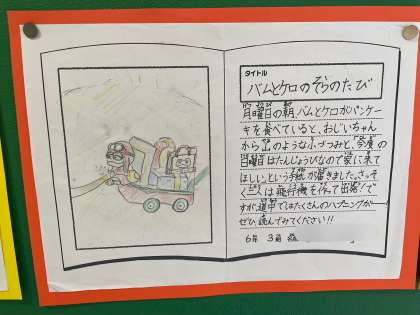 タイトル
バムとケロのそらのたび
月曜日の朝、バムとケロがパンケー
キを食べていると、おじいちゃん
から山のようなふづつみと、「今度の
日曜日はたんじょうびなので家に来て
ほしい。」という手紙が届きました。さっそ
く二人は飛行機を作って出発！で
すが、道中ではたくさんのハプニングが…
ぜひ、読んでみてください!!
6年 3組